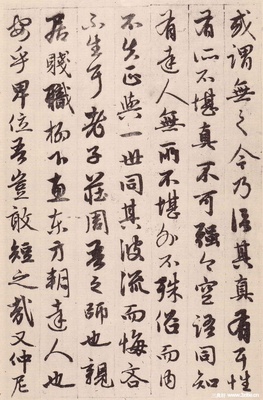 或謂無之今乃信其真有耳性
有所不堪真不可強今空語同知
有達人無所不堪外不殊俗而内
不失正與一世同其波流而悔吝
不生耳老子莊周吾之師也親
居賤職柳下惠東方朔達人也
安乎卑位吾豈敢短之哉又仲尼